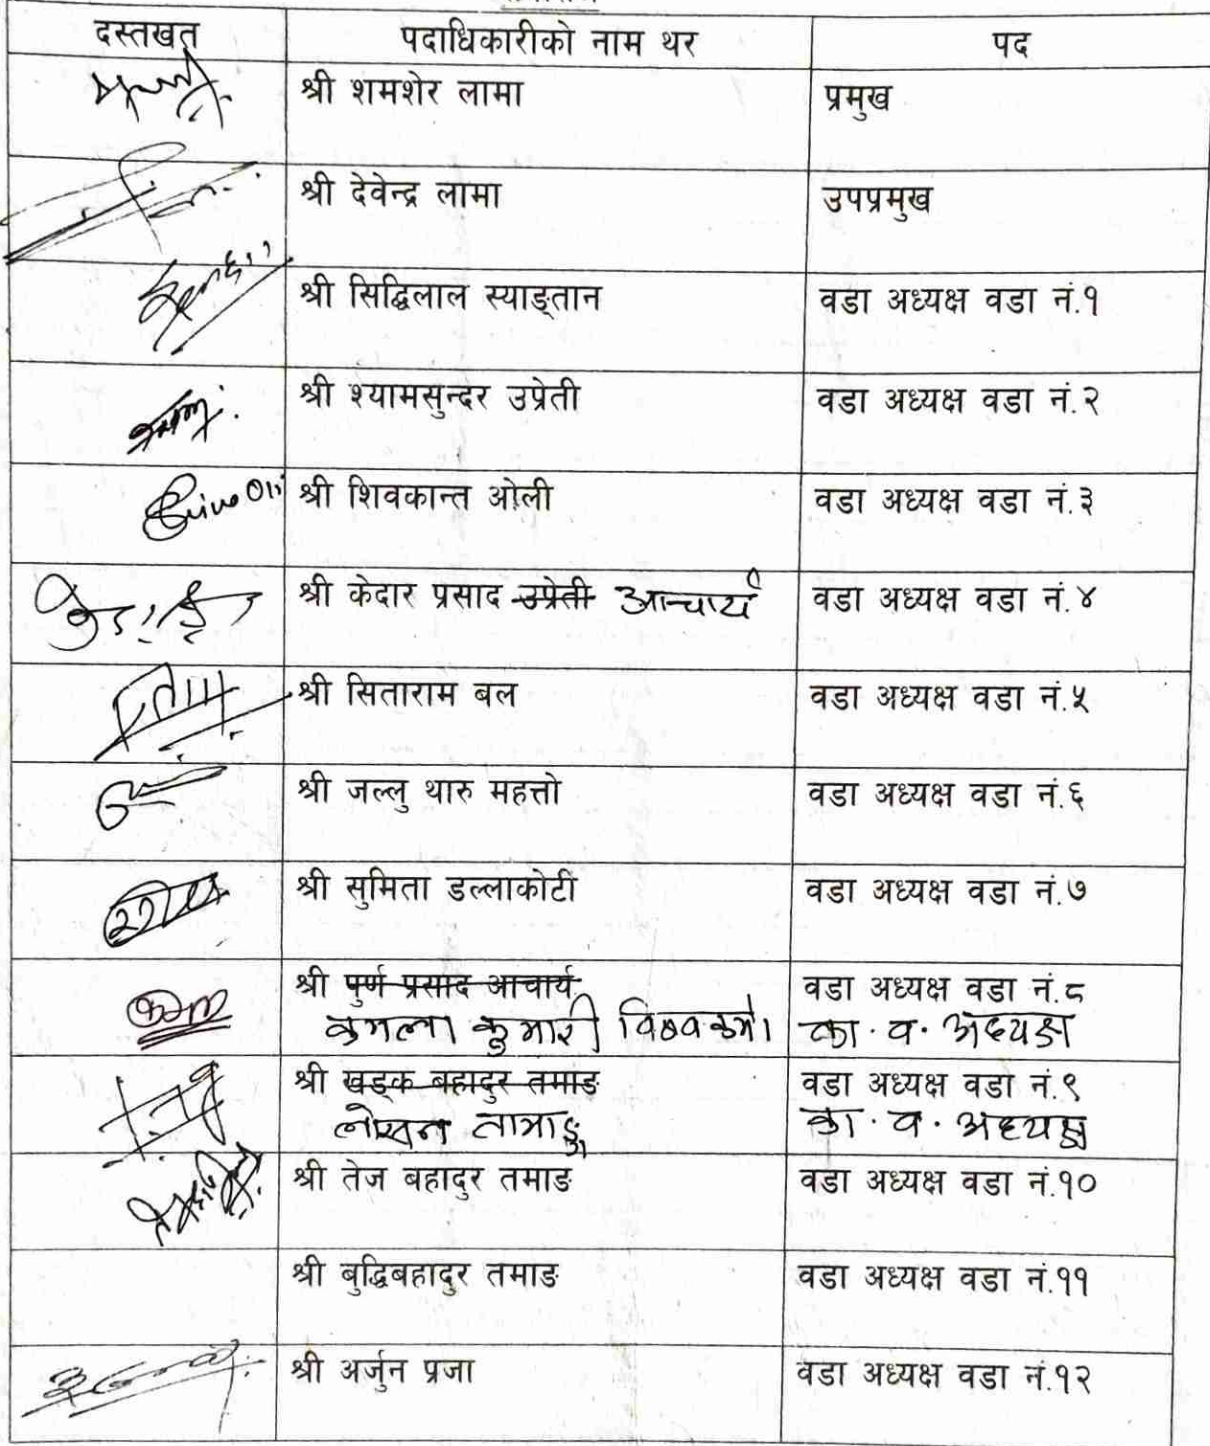 दस्तखत पदाधिकारीको नाम थर पद
श्री शमशेर लामा प्रमुख
श्री देवेन्द्र लामा उपप्रमुख
श्री सिद्धिलाल स्याङ्तान वडा अध्यक्ष वडा नं.१
श्री श्यामसुन्दर उप्रेती वडा अध्यक्ष वडा नं.२
श्री शिवकान्त ओली वडा अध्यक्ष वडा नं.३
श्री केदार प्रसाद उप्रेती आचार्य वडा अध्यक्ष वडा नं.४
श्री सिताराम बल वडा अध्यक्ष वडा नं.५
श्री जल्लु थारु महत्तो वडा अध्यक्ष वडा नं.६
श्री सुमिता डल्लाकोटी वडा अध्यक्ष वडा नं.७
श्री पुर्ण प्रसाद आचार्य वडा अध्यक्ष वडा नं.८
कमला कुमारी विश्वकर्मा का. व. अध्यक्ष
श्री खड्क बहादुर तमाङ वडा अध्यक्ष वडा नं.९
का. व. अध्यक्ष
श्री तेज बहादुर तमाङ वडा अध्यक्ष वडा नं.१०
श्री बुद्धिबहादुर तमाङ वडा अध्यक्ष वडा नं.११
श्री अर्जुन प्रजा वडा अध्यक्ष वडा नं.१२